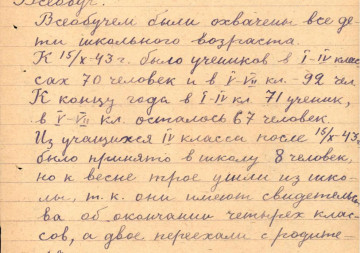 Всеобуч.
Всеобучем были охвачены все де
ти школьного возраста.
К 15/X-43 г. было учеников в I-IV клас
сах 70 человек и в V-VII кл - 92 чел.
К концу года в I-IV кл 71 ученик,
в V-VII кл. осталось 67 человек.
Из учащихся IV класса после 15/X-43 г.
было принято в школу 8 человек,
но к весне трое ушли из шко-
лы, т.к. они имеют свидетельс
ва об окончании четырех клас-
сов, а двое переехали с родите-